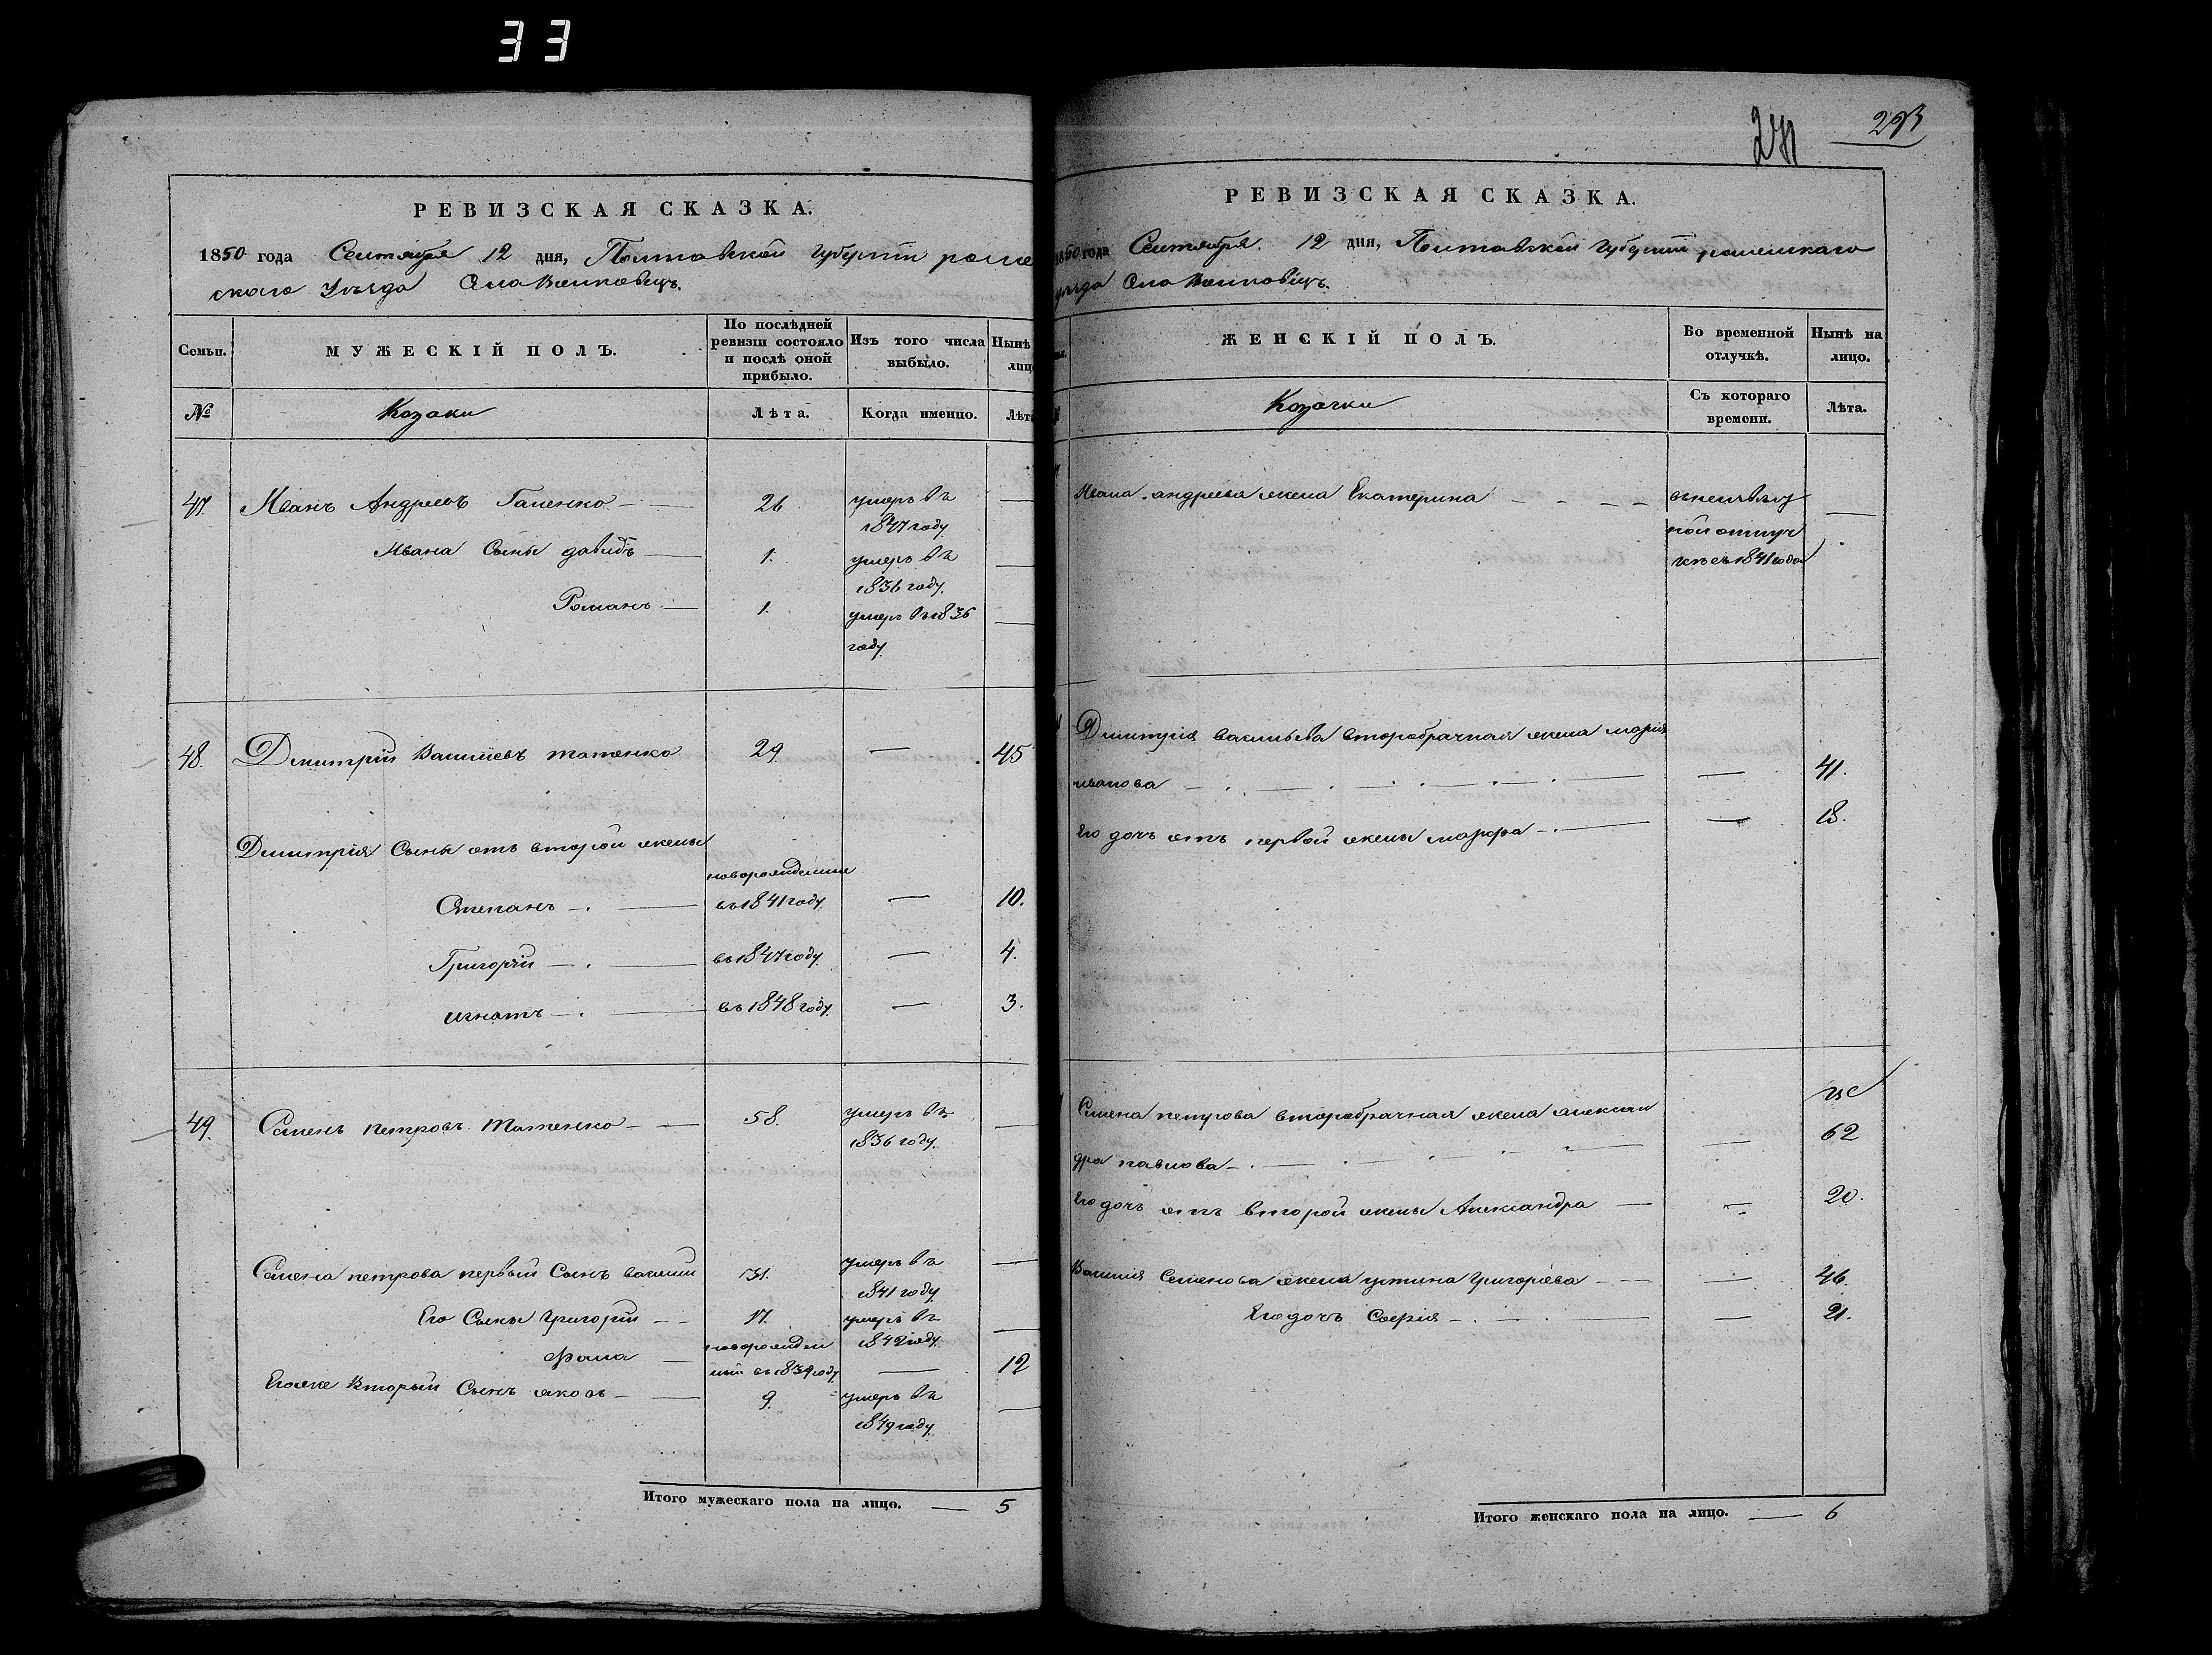 33
293
РЕВИЗСКАЯ СКАЗКА.
1850 года Сентября 12 дня, Полтавской губернии роме
скаго уезда Села
Семьи.
МУЖЕСКІЙ ПОЛЪ.
По послѣдней ревизіи состояло и послѣ оной прибыло.
Изъ того числа выбыло.
Нынѣ лиц
№
Козаки
Лѣта.
Когда именно.
Лѣт
47. Иванъ Андреевъ Галенко — 26 умеръ въ —
1847 году
Ивана Сыны давидъ — 1. умеръ въ —
1836 году.
Романъ — 1. умеръ въ 1836 —
году
48. Дмитрій Василіевъ татенко 29. — 45
Дмитрія Сыны отъ второй жены
новорожденные
Степанъ — въ 1841 году — 10.
Григорій — въ 1847 году — 4.
игнатъ — въ 1848 году — 3.
49. Семенъ петровъ Татенко — 58. умеръ въ —
1836 году.
Семена петрова первый Сынъ василій 31. умеръ въ —
1841 году
Его Сыны григорій — 17. умеръ въ —
1842 году.
фома — новорожден
ный въ 1839 году — 12
Егоже Вторый Сынъ яковъ — 9. умеръ въ —
1849 году
Итого мужескаго пола на лицо. — 5
РЕВИЗСКАЯ СКАЗКА.
1850 года Сентября 12 дня, Полтавской губерніи роменскаго
уезда Села
ЖЕНСКІЙ ПОЛЪ.
Во временной отлучкѣ.
Нынѣ на лицо.
Козачки
Съ котораго времени.
Лѣта.
Ивана андреева жена Екатерина —
ной отлуч
кѣ съ 1841 года
Дмитрія васильева второбрачная жена марія
иванова — — 41.
Его дочь отъ первой жены марфа — — 18.
Семена петрова второбрачная жена алексан
дра павлова — — 62
Его дочь отъ второй жены Александра — — 20.
Василія Семенова жена устина григорѣва — — 46.
Его дочь Софія — — 21.
Итого женскаго пола на лицо. — 6